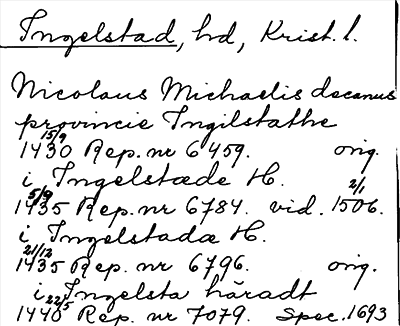 Ingelstad, hd, Krist. l.
Nicolaus Michaelis decanus
provincie Ingilstathe
15/9
1430 Rep. nr 6459. orig.
i Ingelstæde H.
5/9 2/1
1435 Rep. nr 6784. vid. 1506.
i Ingelstada H.
21/12
1435 Rep. nr 6796. orig.
i Ingelsta häradt
22/5
1440 Rep. nr 7079. Spec. 1693